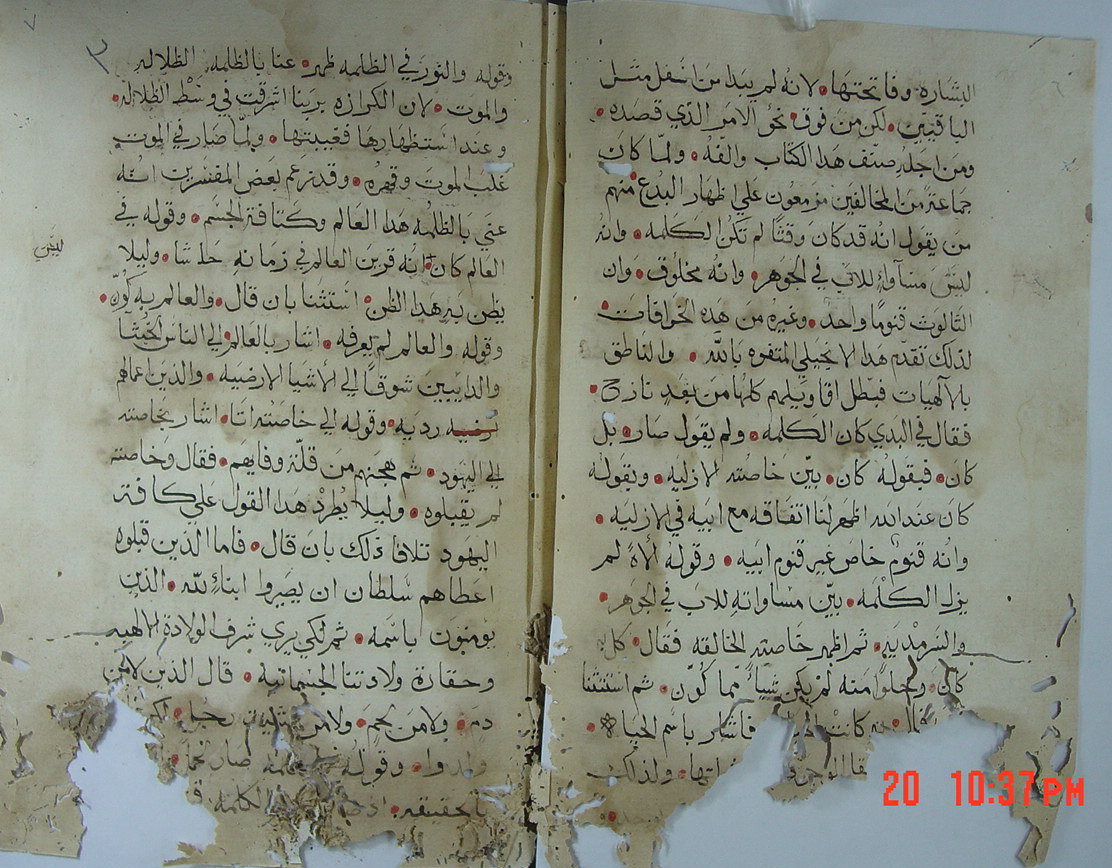 البشاره وفاتحتها • لانه لم يبدا من اسفل مثل
الباقيين • لكن من فوق • نحو الامر الذي قصده •
ومن اجله صنف هدا الكتاب والفه • ولما كان
جماعة من المخالفين مزمعون علي اظهار البدع منهم
من يقول انه قد كان وقتًا لم تكن الكلمه • وانه
ليس مساوٍ للاب في الجوهر • وانه مخلوق • وان
الثالوث قنومًا واحد • وغيره من هده الخرافات
لذلك تقدم هدا الانجيلي المتفوه بالله • والناطق
بالالهيات فبطل اقاويلهم كلها من بعدٍ نازح •
فقال في البدي كان الكلمه • ولم يقول صار • بل
كان • فبقوله كان • بيّن خاصته الازليه • وبقوله
كان عند الله اظهر لنا اتفاقه مع ابيه في الازليه •
وانه قنوم خاص غير قنوم ابيه • وقوله الاه لم
يزل الكلمه • بيّن مساواته للاب في الجوهر •
والسرمديه • ثم اظهر خاصته الخالقه فقال • كل به
كان • وخلوًا منه لم يكن شياءً مما كوّن • ثم استثنا
به كانت الحياه فاشار باسم الحياه
ولذلك
وقوله والنور في الظلمه ظهر • عنا بالظلمه الظلاله
والموت • لان الكرازه بربنا اشرقت في وسط الظلاله •
وعند استظهارها فغيبتها • ولما صار في الموت
غلب الموت وقهره • وقد زعم بعض المفسرين انه
عني بالظلمه هدا العالم وكثافة الجسم • وقوله في
العالم كان • انه قرين العالم في زمانه حاشا • وليلا
يظن به هدا الظن • استثنا بان قال • والعالم به كوّن •
وقوله والعالم لم يعرفه • اشار بالعالم الي الناس الخبثا
والدايبين شوقًا الي الاشيا الارضيه • والذين اعمالهم
رديه • وقوله الي خاصته اتا • اشار بخاصته
ليس
الي اليهود • ثم هجنهم من قلة وفايهم • فقال وخاصته
لم يقبلوه • وليلا يُطرد هدا القول علي كافة
اليهود تلافا ذلك بان قال • فاما الذين قبلوه
اعطاهم سلطان ان يصيروا ابناء لله • الذين
يومنون باسمه • ثم لكي يري شرف الولادة الالهيه
وحقارة ولادتنا الجسمانيه • قال الذين لا من
دم • ولا من لحم • ولا من رجل •
ولدوا • وقوله صار
بالحقيقه • الكلمه
20 10:37PM